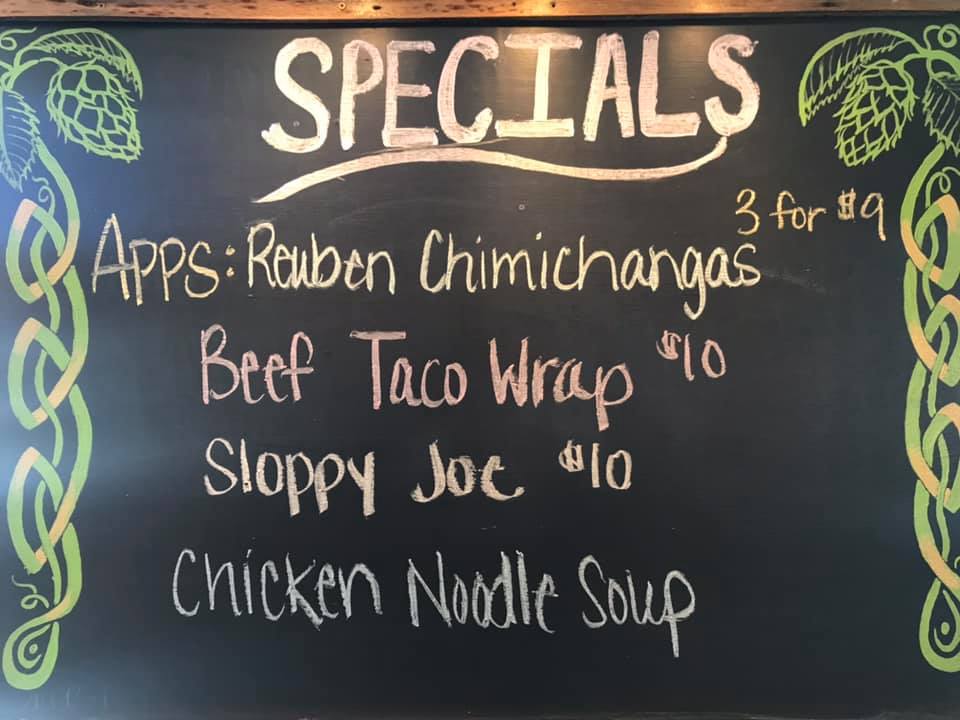 SPECIALS
Apps: Reuben Chimichangas 3 for $9
Beef Taco Wrap $10
Sloppy Joe $10
Chicken Noodle Soup